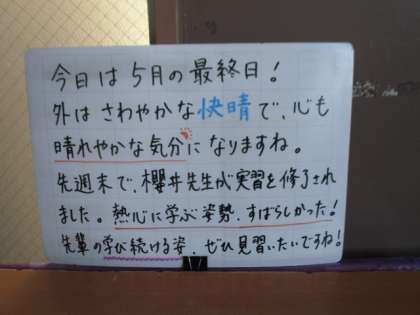 今日は5月の最終日！
外はさわやかな快晴で、心も
晴れやかな気分になりますね。
先週末で、櫻井先生が実習を修了され
ました。熱心に学ぶ姿勢、すばらしかった！
先輩の学び続ける姿、ぜひ見習いたいですね！